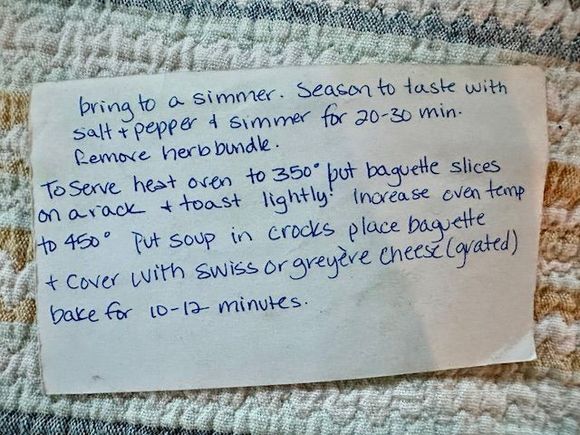 bring to a simmer. Season to taste with
salt + pepper & simmer for 20-30 min.
Remove herb bundle.
To Serve heat oven to 350° put baguette slices
on a rack + toast lightly. Increase oven temp
to 450° Put soup in crocks place baguette
+ cover with swiss or greyère cheese (grated)
bake for 10-12 minutes.